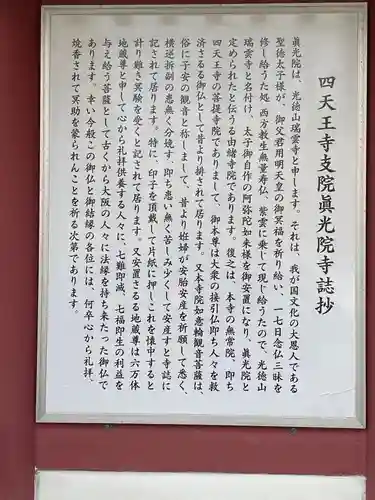 四天王寺支院眞光院寺誌抄
眞光院は、光徳山瑞雲寺と申します。それは、我が国文化の大恩人である
聖徳太子様が、御父君用明天皇の御冥福を祈り給い、一七日念仏三昧を
修し給うた処、西方教主無量寿仏、紫雲に乗して現じ給うたので、光徳山
瑞雲寺と名付け、太子御自作の阿弥陀如来様を御安置になり、眞光院と
定められたと伝うる由緒寺院であります。復之は、本寺の無常院、即ち
四天王寺の菩提寺院でありまして、御本尊は大衆の接引仏即ち人々を救
済さるる御仏として昔より拝されて居ります。又本寺院如意輪観音菩薩は、
俗に子安の観音と称しまして、昔より妊婦が安胎安産を祈願して悉く、
横逆拆副の患無く分娩す、即ち患い無く苦しみ少くして安産すと寺誌に
記されて居ります。特に、印子を頂戴して片紙に押しこれを懐中すると
計り難き冥験を受くと記されて居ります。又安置さるる地蔵尊は六万体
地蔵尊と申して心から礼拝供養する人々に、七難即滅、七福即生の利益を
与え給う菩薩として古くから大阪の人々に法縁を持ち来たった御仏で
あります。幸い今般この御仏と御結縁の各位には、何卒心から礼拝、
焼香されて冥助を蒙られんことを祈る次第であります。